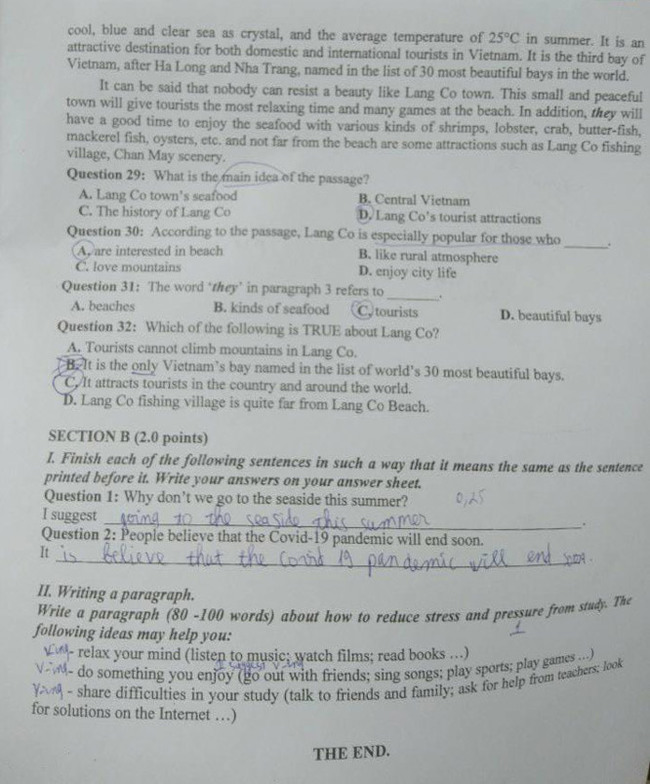 cool, blue and clear sea as crystal, and the average temperature of 25°C in summer. It is an
attractive destination for both domestic and international tourists in Vietnam. It is the third bay of
Vietnam, after Ha Long and Nha Trang, named in the list of 30 most beautiful bays in the world.
It can be said that nobody can resist a beauty like Lang Co town. This small and peaceful
town will give tourists the most relaxing time and many games at the beach. In addition, they will
have a good time to enjoy the seafood with various kinds of shrimps, lobster, crab, butter-fish,
mackerel fish, oysters, etc. and not far from the beach are some attractions such as Lang Co fishing
village, Chan May scenery.
Question 29: What is the main idea of the passage?
A. Lang Co town's seafood B. Central Vietnam
C. The history of Lang Co D. Lang Co's tourist attractions
Question 30: According to the passage, Lang Co is especially popular for those who ______.
A. are interested in beach B. like rural atmosphere
C. love mountains D. enjoy city life
Question 31: The word 'they' in paragraph 3 refers to ______.
A. beaches B. kinds of seafood C. tourists D. beautiful bays
Question 32: Which of the following is TRUE about Lang Co?
A. Tourists cannot climb mountains in Lang Co.
B. It is the only Vietnam's bay named in the list of world's 30 most beautiful bays.
C. It attracts tourists in the country and around the world.
D. Lang Co fishing village is quite far from Lang Co Beach.
SECTION B (2.0 points)
I. Finish each of the following sentences in such a way that it means the same as the sentence
printed before it. Write your answers on your answer sheet.
Question 1: Why don't we go to the seaside this summer? 0,25
I suggest going to the seaside this summer.
Question 2: People believe that the Covid-19 pandemic will end soon.
It is believe that the Covid 19 pandemic will end soon.
II. Writing a paragraph.
Write a paragraph (80 -100 words) about how to reduce stress and pressure from study. The
following ideas may help you: 1
V-ing - relax your mind (listen to music; watch films; read books …)
I suggest V-ing
V-ing - do something you enjoy (go out with friends; sing songs; play sports; play games …)
V-ing - share difficulties in your study (talk to friends and family; ask for help from teachers; look
for solutions on the Internet …)
THE END.